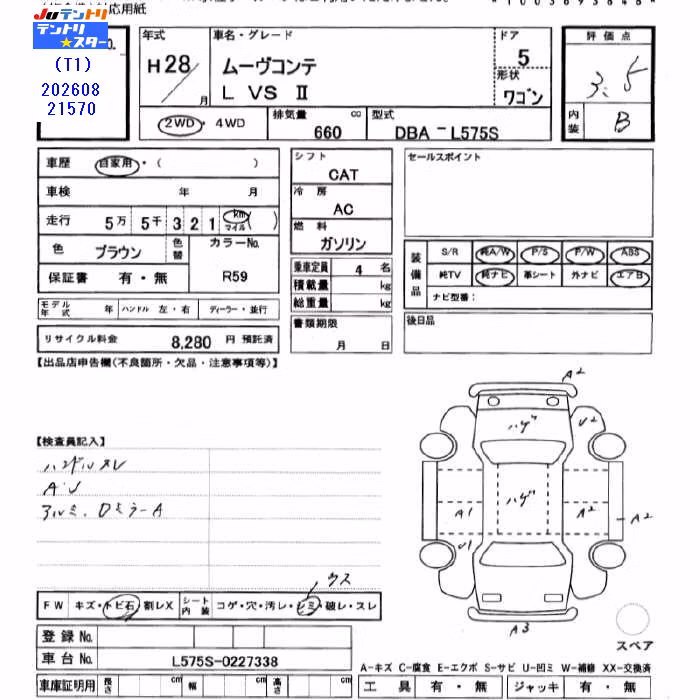 対応用紙
JUテントリ
テントリ★スター
(T1)
202608
21570
年式
H28
月
車名・グレード
ムーヴコンテ
L VS Ⅱ
ドア
5
形状
ワゴン
評価点
3.5
内装
B
2WD・4WD
排気量
cc
660
型式
DBA-L575S
車歴
自家用・( )
車検 年 月
走行 5万 5千 3 2 1 km マイル ( )
色 ブラウン
色替
カラーNo.
R59
保証書 有・無
モデル年式 年
ハンドル 左・右
ディーラー・並行
リサイクル料金 8,280 円 預託済
シフト
CAT
冷房
AC
燃料
ガソリン
乗車定員 4 名
積載量 kg
総重量 kg
書類期限
月 日
セールスポイント
装備品
S/R 純A/W P/S P/W ABS
純TV 純ナビ 革シート 外ナビ エアB
ナビ型番:
後日品
【出品店申告欄(不良箇所・欠品・注意事項等)】
【検査員記入】
ハンドルスレ
A・U
アルミ、Dミラー A
A2
ハゲ
U2
ハゲ
A1
A2
A2
U1
A3
スペア
ウス
FW キズ・トビ石 割レX
シート内装
コゲ・穴・汚レ・シミ・破レ・スレ
登録No.
車台No. L575S-0227338
車庫証明用 長さ cm 幅 cm 高さ cm
A-キズ C-腐食 E-エクボ S-サビ U-凹ミ W-補修 XX-交換済
工具 有・無 ジャッキ 有・無